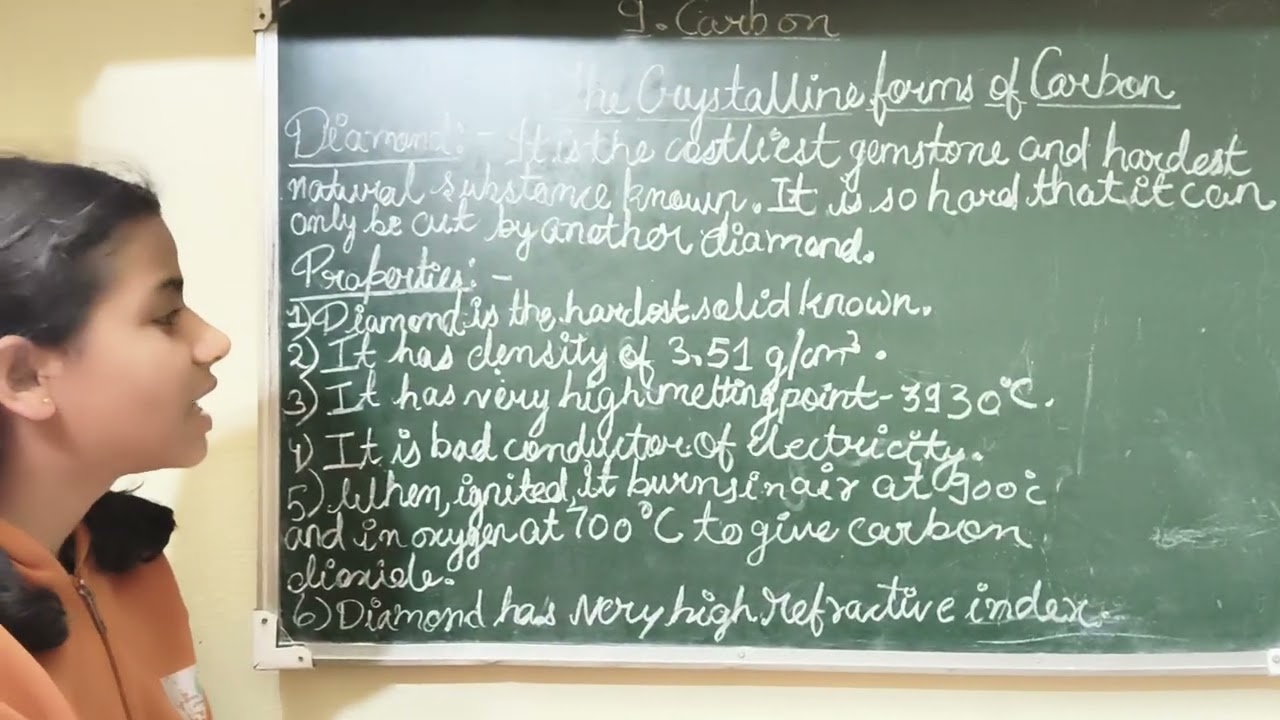 9. Carbon
The Crystalline forms of Carbon
Diamond: - It is the costliest gemstone and hardest
natural substance known. It is so hard that it can
only be cut by another diamond.
Properties: -
1) Diamond is the hardest solid known.
2) It has density of 3.51 g/cm³.
3) It has very high melting point - 3930°C.
4) It is bad conductor of electricity.
5) When, ignited, it burns in air at 900°C
and in oxygen at 700°C to give carbon
dioxide.
6) Diamond has very high refractive index.